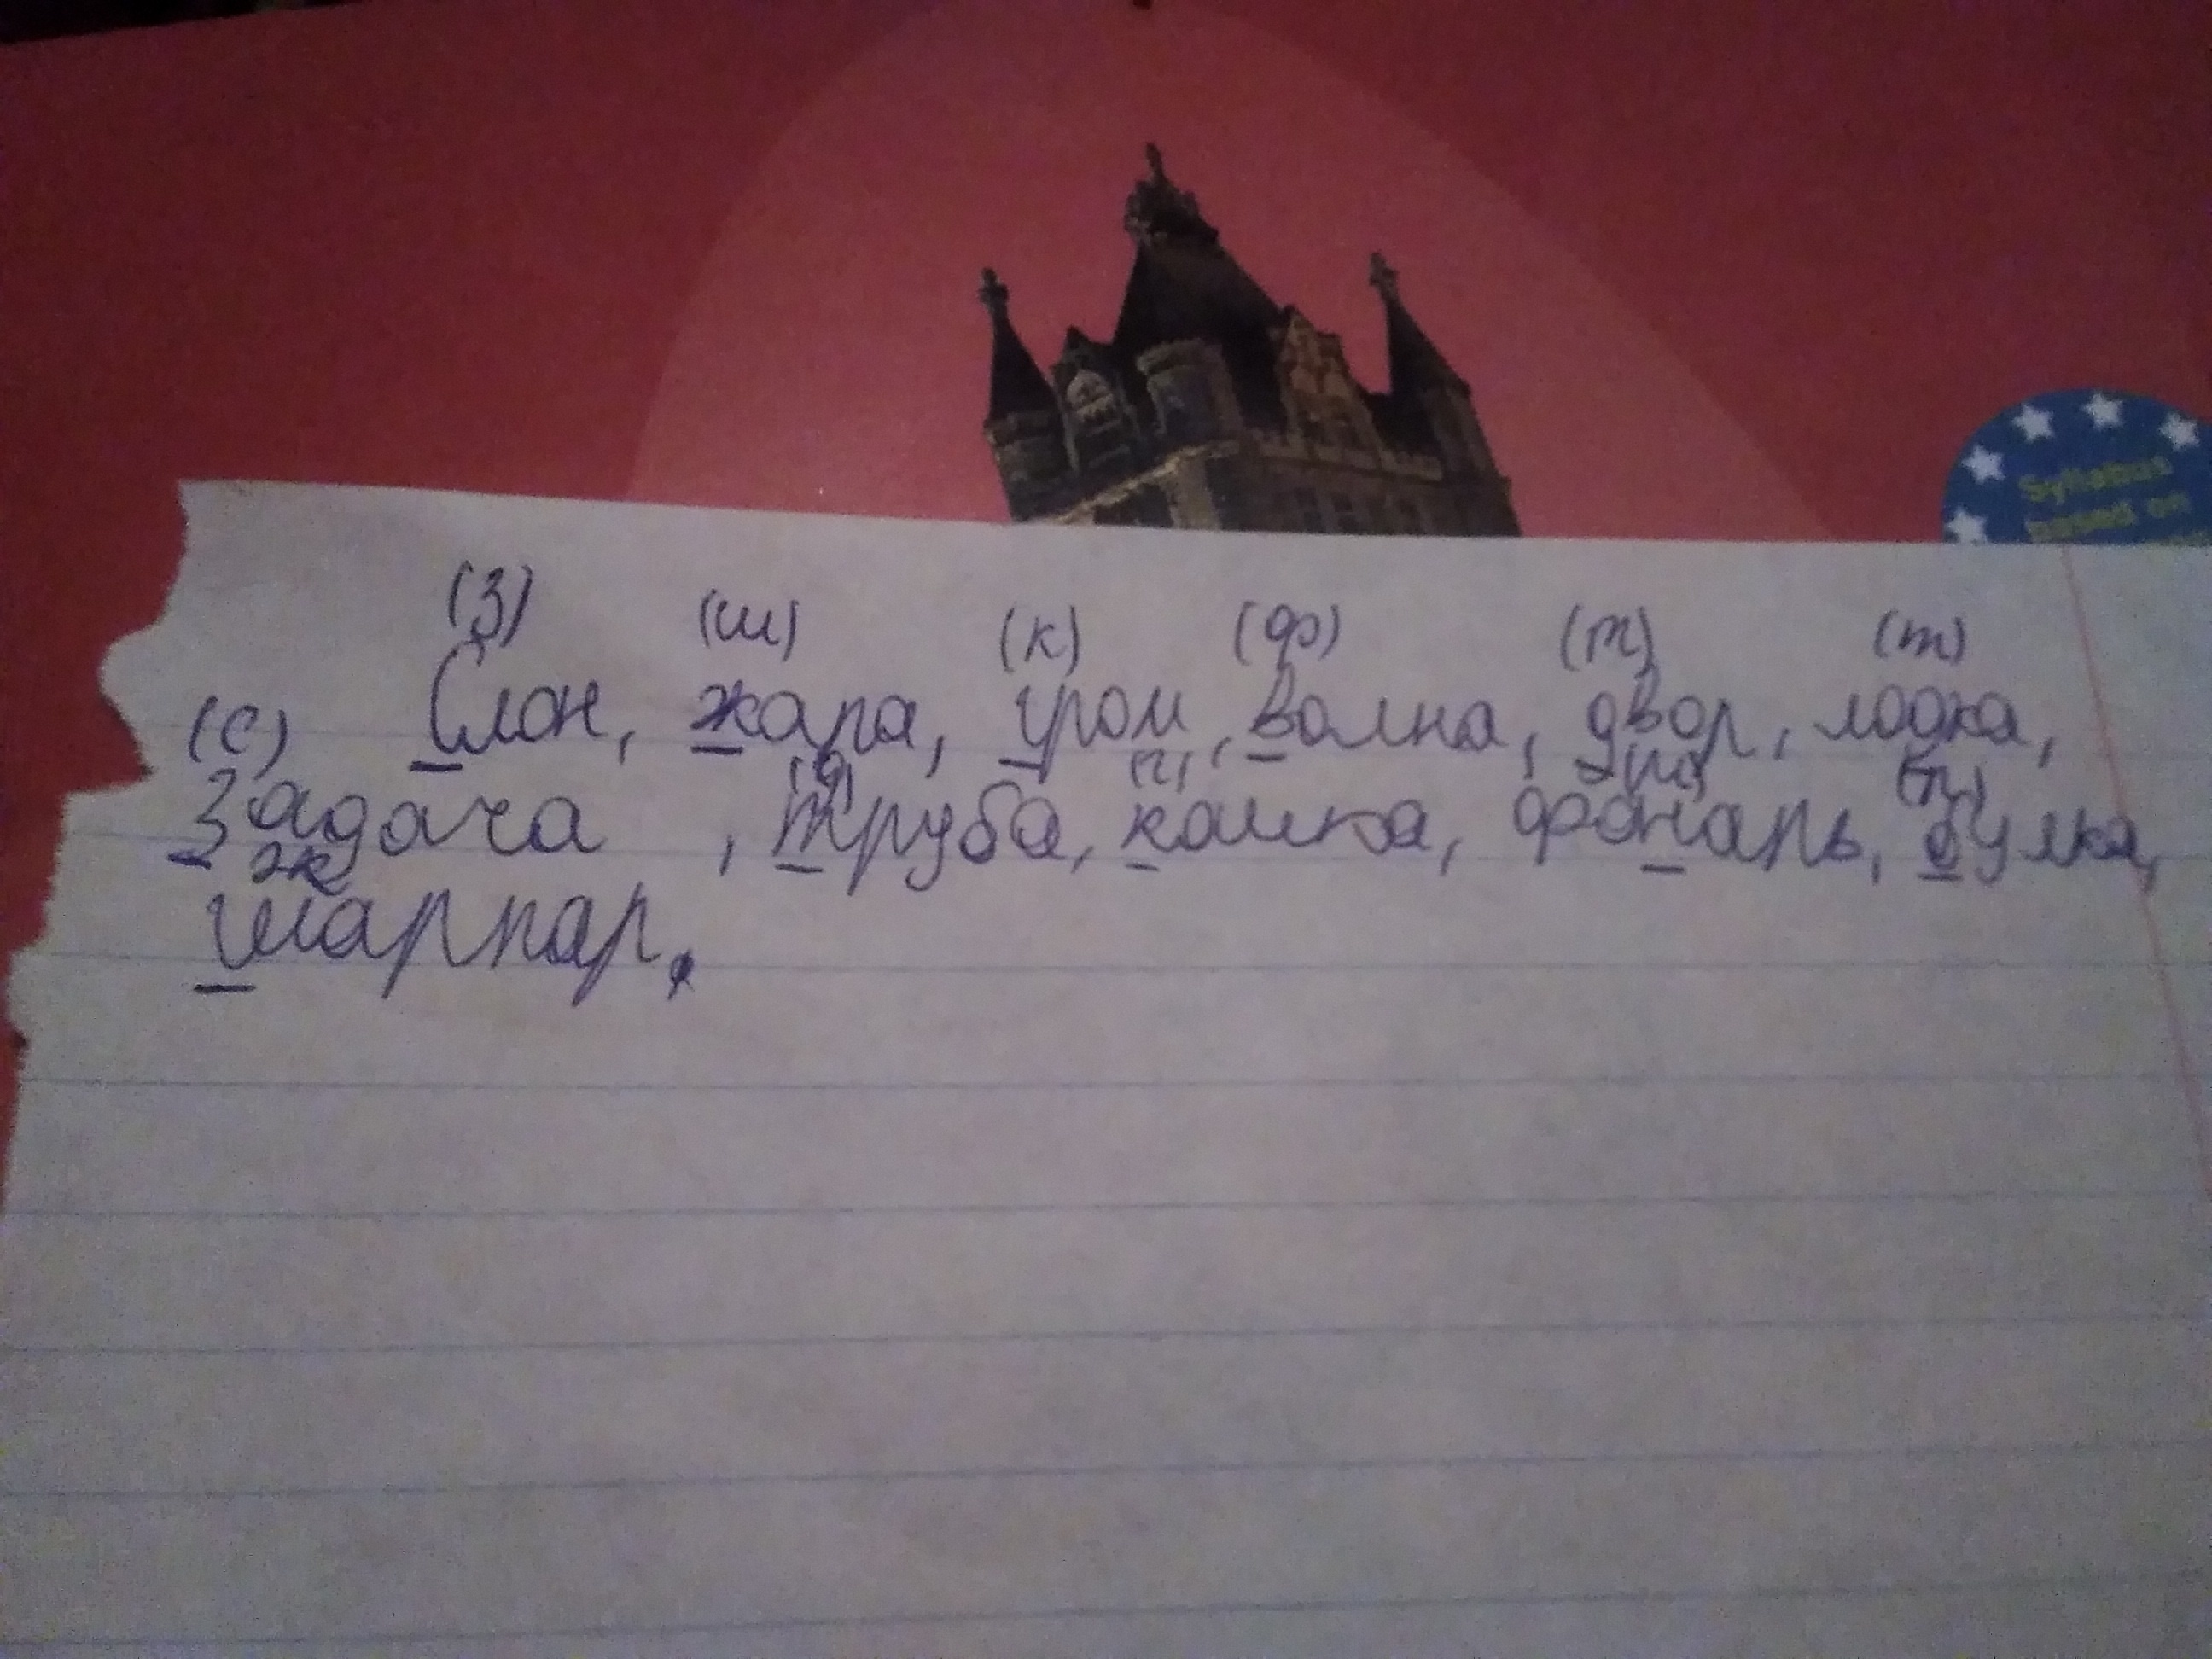 (з) (ш) (к) (ф) (т) (т)
Слон, жара, гром, волна, двор, лодка,
(с) (д) (г) (п)
Задача, труба, кошка, фонарь, булка,
ж
шарпар.
Syllabus
based on